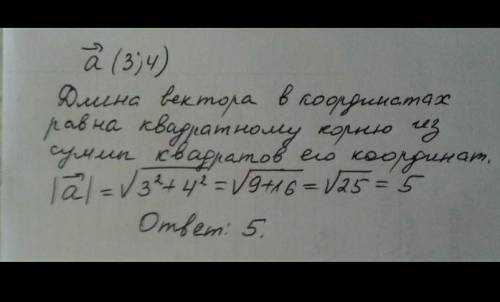 a⃗ (3;4)
Длина вектора в координатах
равна квадратному корню из
сумм квадратов его координат.
|a⃗| = √3²+4² = √9+16 = √25 = 5
Ответ: 5.